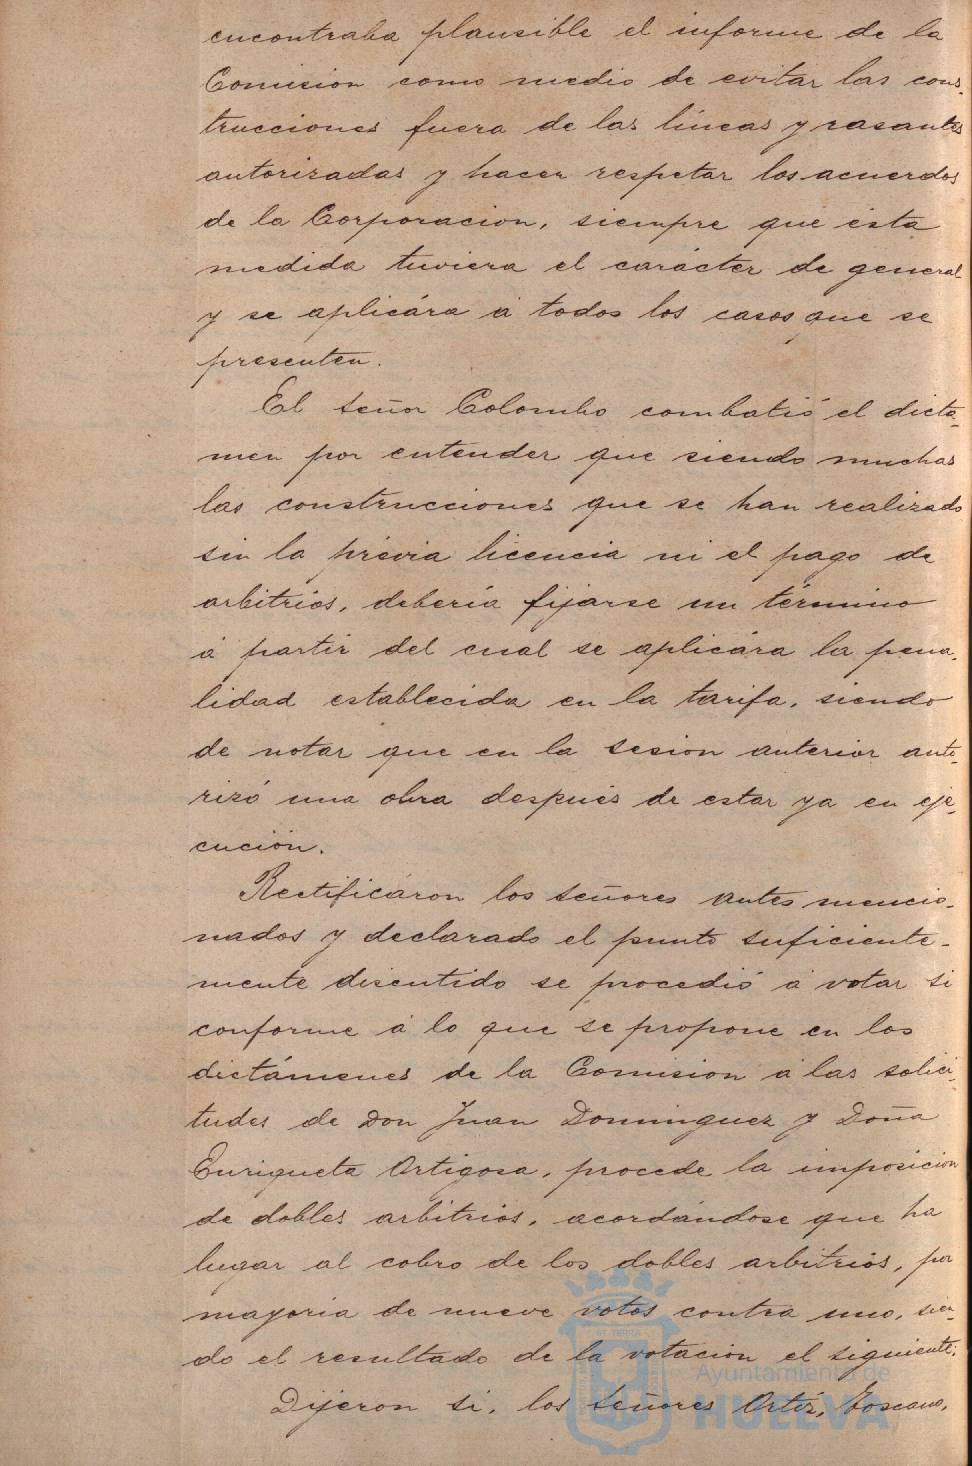 encontraba plausible el informe de la
Comision como medio de evitar las cons-
trucciones fuera de las líneas y rasantes
autorizadas y hacer respetar los acuerdos
de la Corporacion, siempre que ésta
medida tuviera el carácter de general
y se aplicára á todos los casos que se
presenten.
El señor Colombo combatió el dictá-
men por entender que siendo muchas
las construcciones que se han realizado
sin la prévia licencia ni el pago de
arbitrios, debería fijarse un término
á partir del cual se aplicára la pena-
lidad establecida en la tarifa, siendo
de notar que en la sesion anterior auto-
rizó una obra después de estar ya en eje-
cución.
Rectificáron los señores antes mencio-
nados y declarado el punto suficiente-
mente discutido se procedió á votar si
conforme á lo que se propone en los
dictámenes de la Comision á las solici-
tudes de Don Juan Dominguez y Doña
Enriqueta Ortigosa, procede la imposicion
de dobles arbitrios, acordándose que ha
lugar al cobro de los dobles arbitrios, por
mayoria de nueve votos contra uno, sien-
do el resultado de la votacion el siguiente:
Dijeron si, los Señores Ortíz, Toscano,
Ayuntamiento de
HUELVA